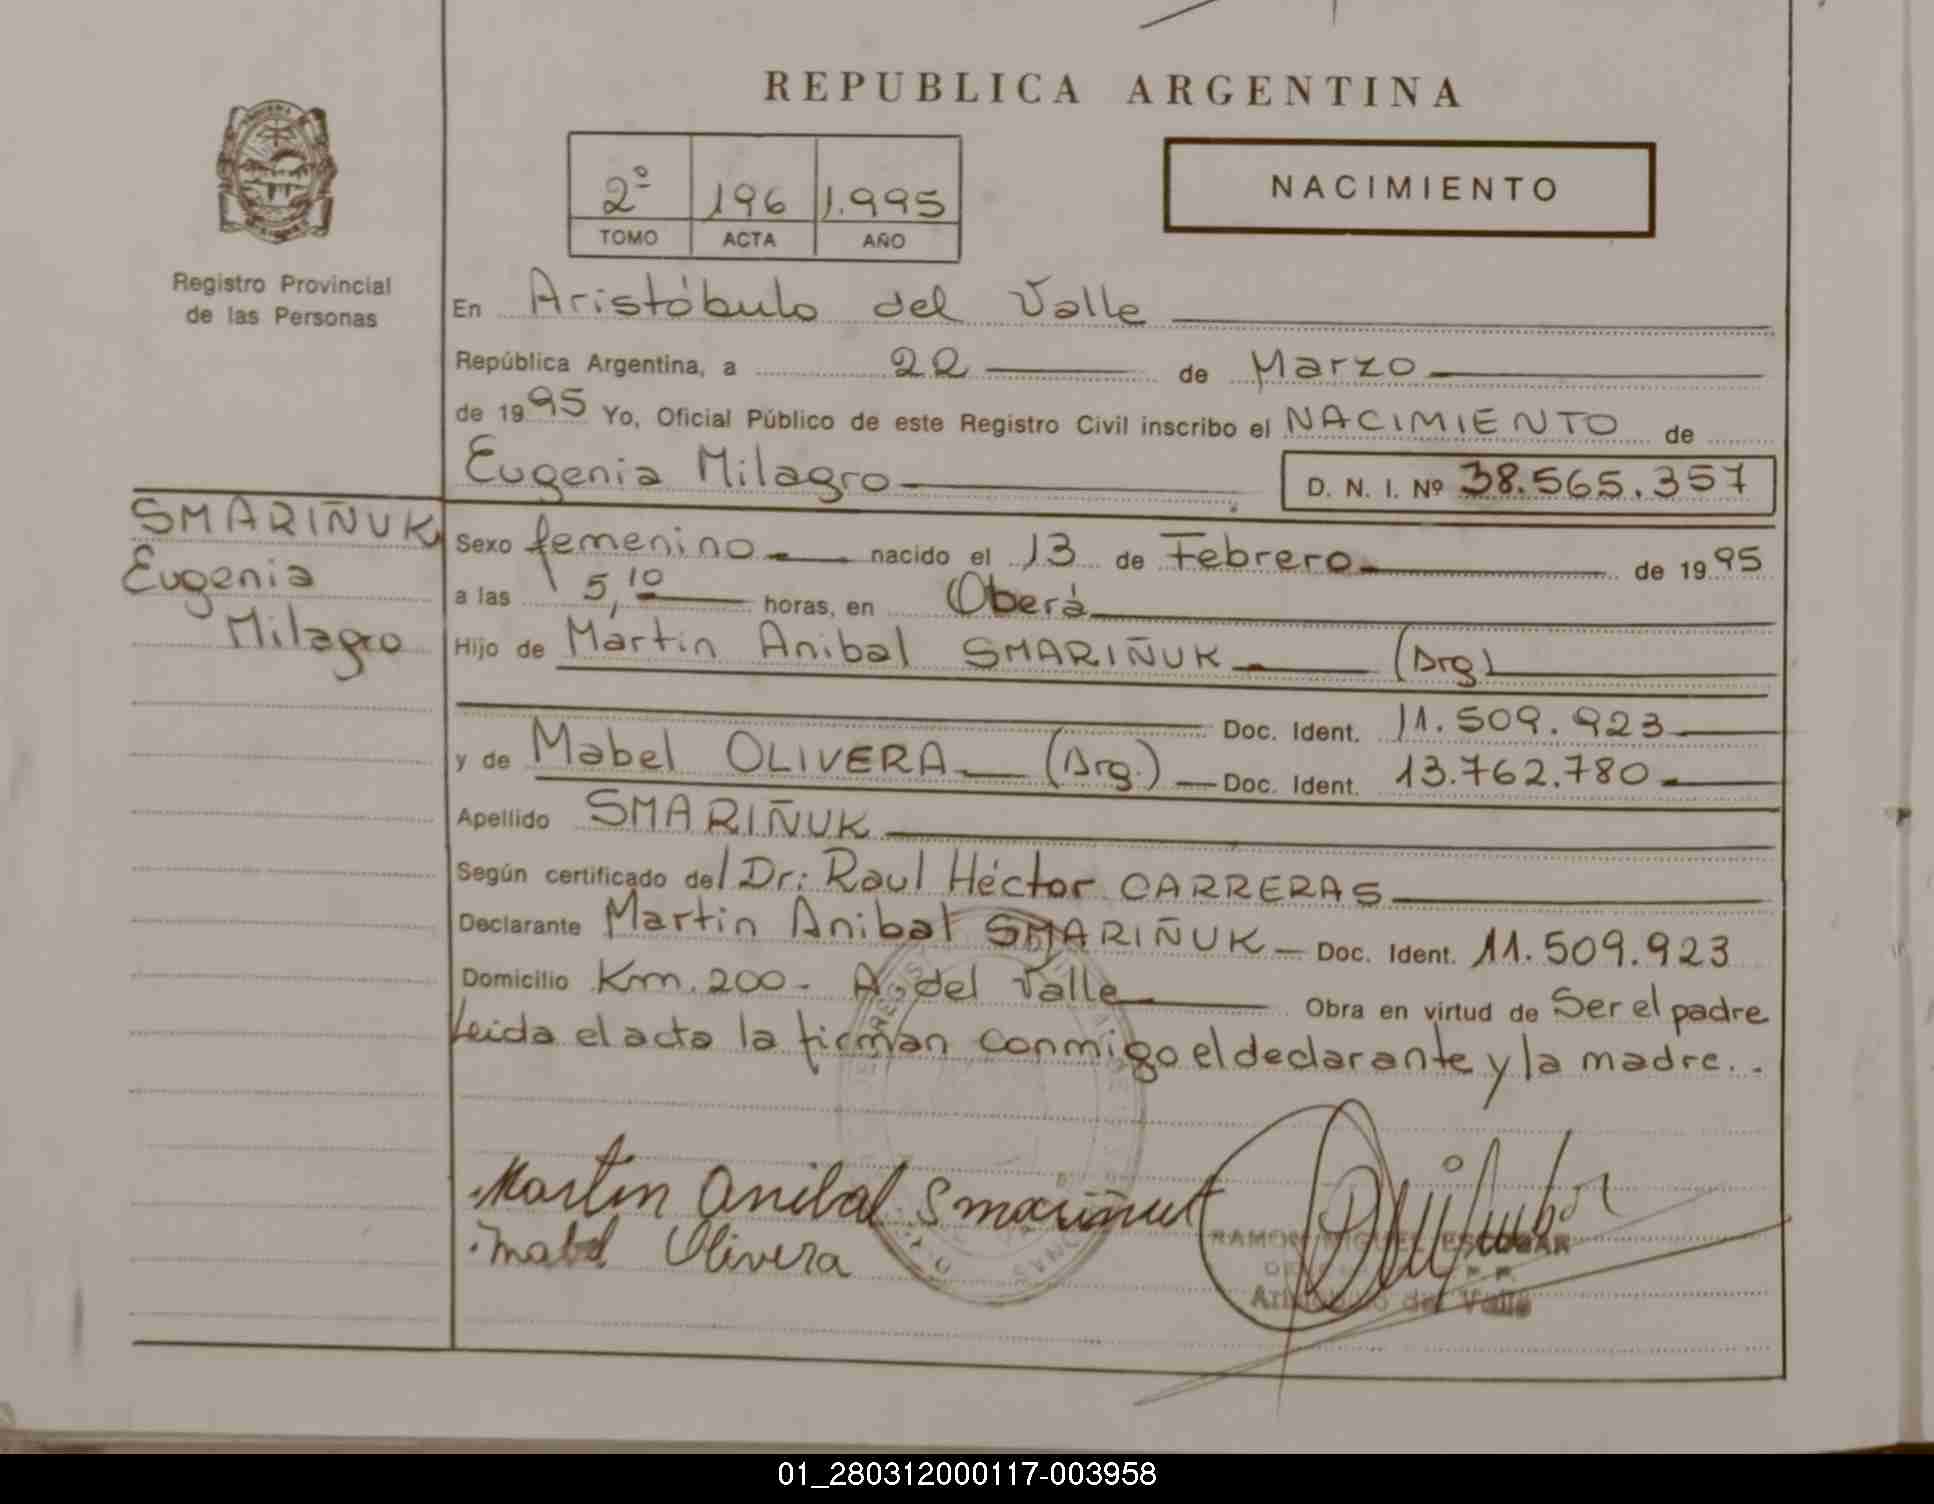 REPUBLICA ARGENTINA
2º 196 1.995
TOMO ACTA AÑO
NACIMIENTO
Registro Provincial
de las Personas
SMARIÑUK
Eugenia
Milagro
En Aristóbulo del Valle
República Argentina, a 22 de Marzo
de 1995 Yo, Oficial Público de este Registro Civil inscribo el NACIMIENTO de
Eugenia Milagro D. N. I. Nº 38.565.357
Sexo femenino nacido el 13 de Febrero de 1995
a las 5,10 horas, en Oberá
Hijo de Martin Anibal SMARIÑUK (Arg)
Doc. Ident. 11.509.923
y de Mabel OLIVERA (Arg.) Doc. Ident. 13.762.780
Apellido SMARIÑUK
Según certificado del Dr: Raul Héctor CARRERAS
Declarante Martin Anibal SMARIÑUK Doc. Ident. 11.509.923
Domicilio Km. 200 - A. del Valle Obra en virtud de Ser el padre
Leida el acta la firman conmigo el declarante y la madre..
Martin Anibal Smariñuk
Mabel Olivera
RAMON MIGUEL ESCOBAR
Aristóbulo del Valle
01_280312000117-003958